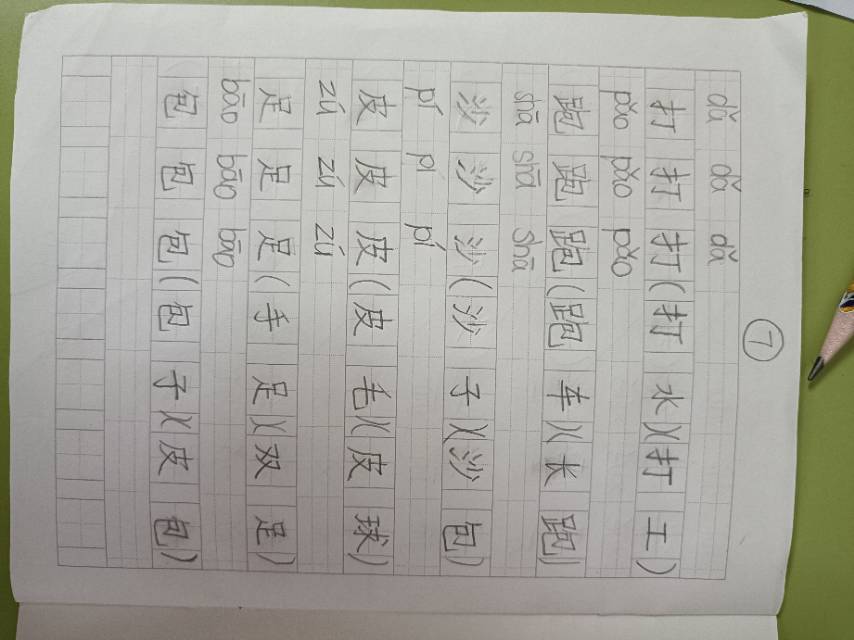 ⑦
dǎ dǎ dǎ
打 打 打(打水)(打工)
pǎo pǎo pǎo
跑 跑 跑(跑车)(长跑)
shā shā shā
沙 沙 沙(沙子)(沙包)
pí pí pí
皮 皮 皮(皮毛)(皮球)
zú zú zú
足 足 足(手足)(双足)
bāo bāo bāo
包 包 包(包子)(皮包)